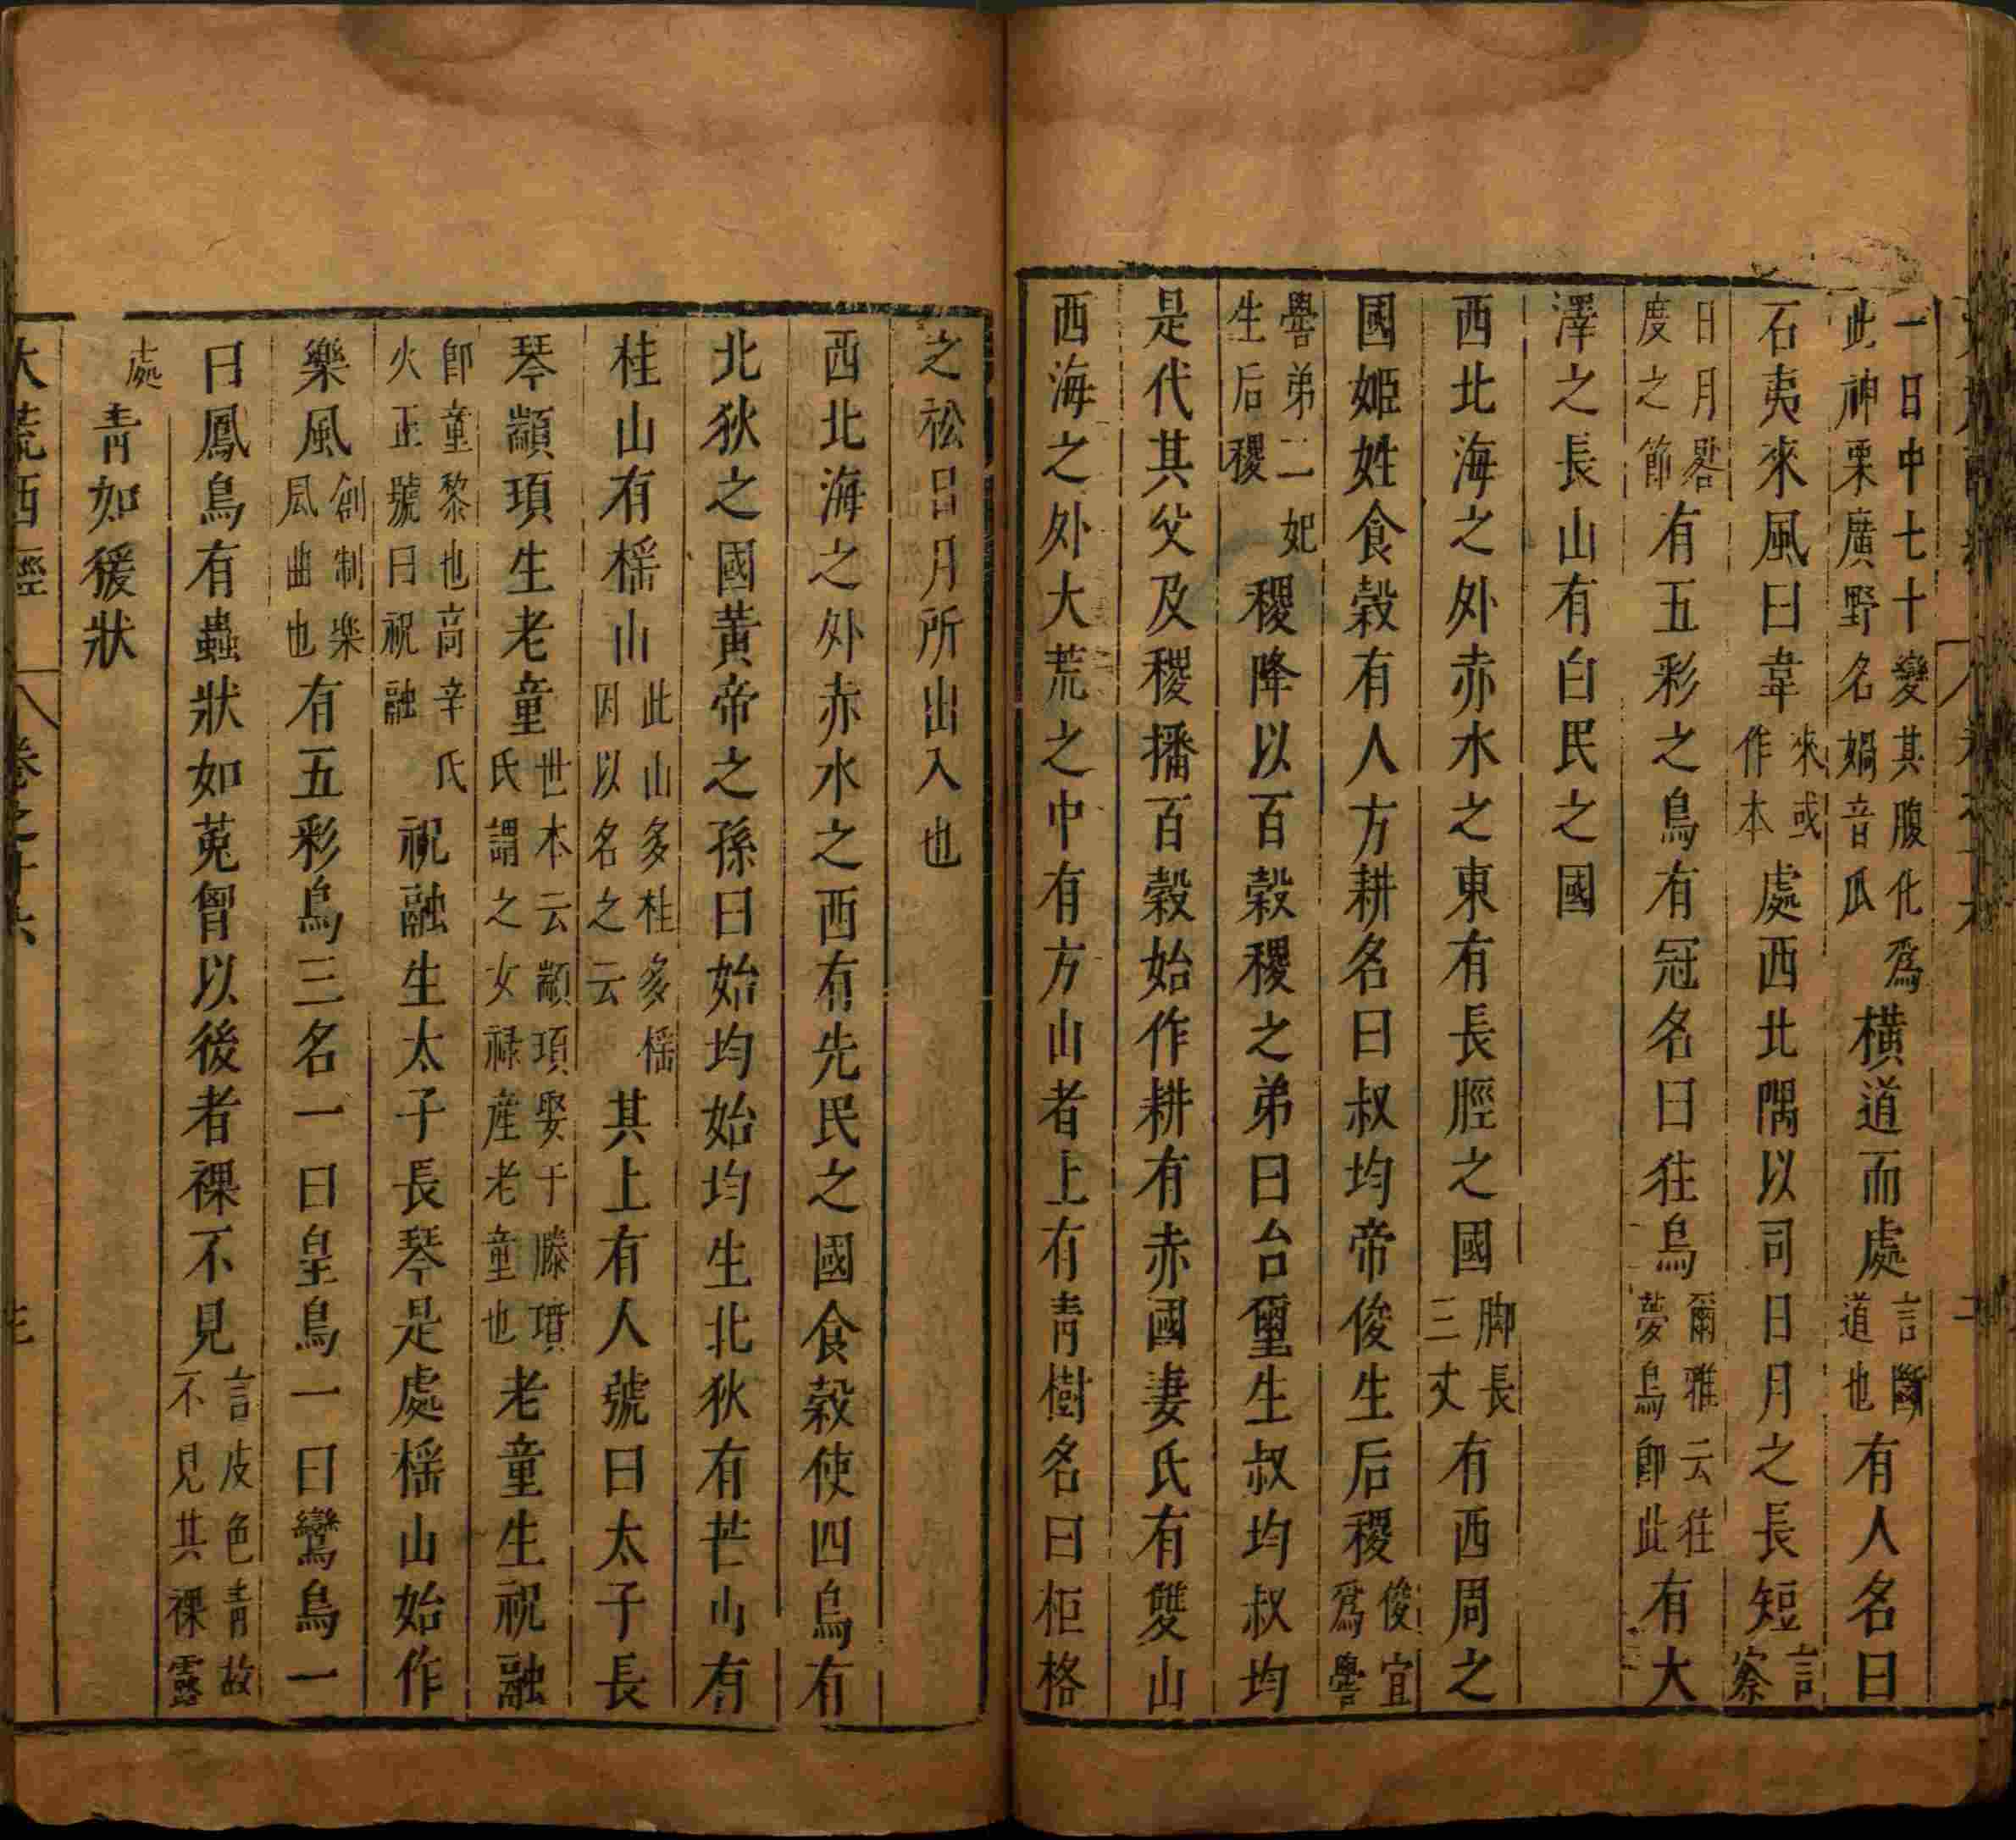 一日中七十變其腹化爲此神栗廣野名媧音瓜橫道而處言斷道也有人名曰
石夷來風曰韋來或作本處西北隅以司日月之長短言察
日月晷度之節有五彩之鳥有冠名曰狂鳥爾雅云狂夢鳥卽此有大
澤之長山有白民之國
西北海之外赤水之東有長脛之國脚長三丈有西周之
國姬姓食穀有人方耕名曰叔均帝俊生后稷俊宜爲嚳
嚳弟二妃生后稷稷降以百穀稷之弟曰台璽生叔均叔均
是代其父及稷播百穀始作耕有赤國妻氏有雙山
西海之外大荒之中有方山者上有青樹名曰柜格
之松日月所出入也
西北海之外赤水之西有先民之國食穀使四鳥有
北狄之國黃帝之孫曰始均始均生北狄有芒山有
桂山有榣山此山多桂多榣因以名之云其上有人號曰太子長
琴顓頊生老童世本云顓頊娶于滕墳氏謂之女祿產老童也老童生祝融
卽重黎也高辛氏火正號曰祝融祝融生太子長琴是處榣山始作
樂風創制樂風曲也有五彩鳥三名一曰皇鳥一曰鸞鳥一
曰鳳鳥有蟲狀如菟胷以後者裸不見言皮色青故不見其裸露
處青如猨狀
大荒西經 卷之十六